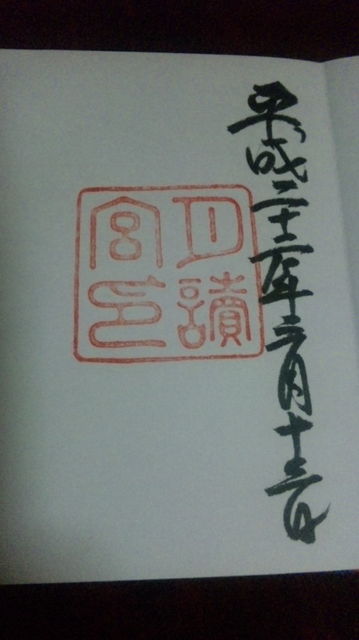 平成二十二年三月十三日
月讀
宮印